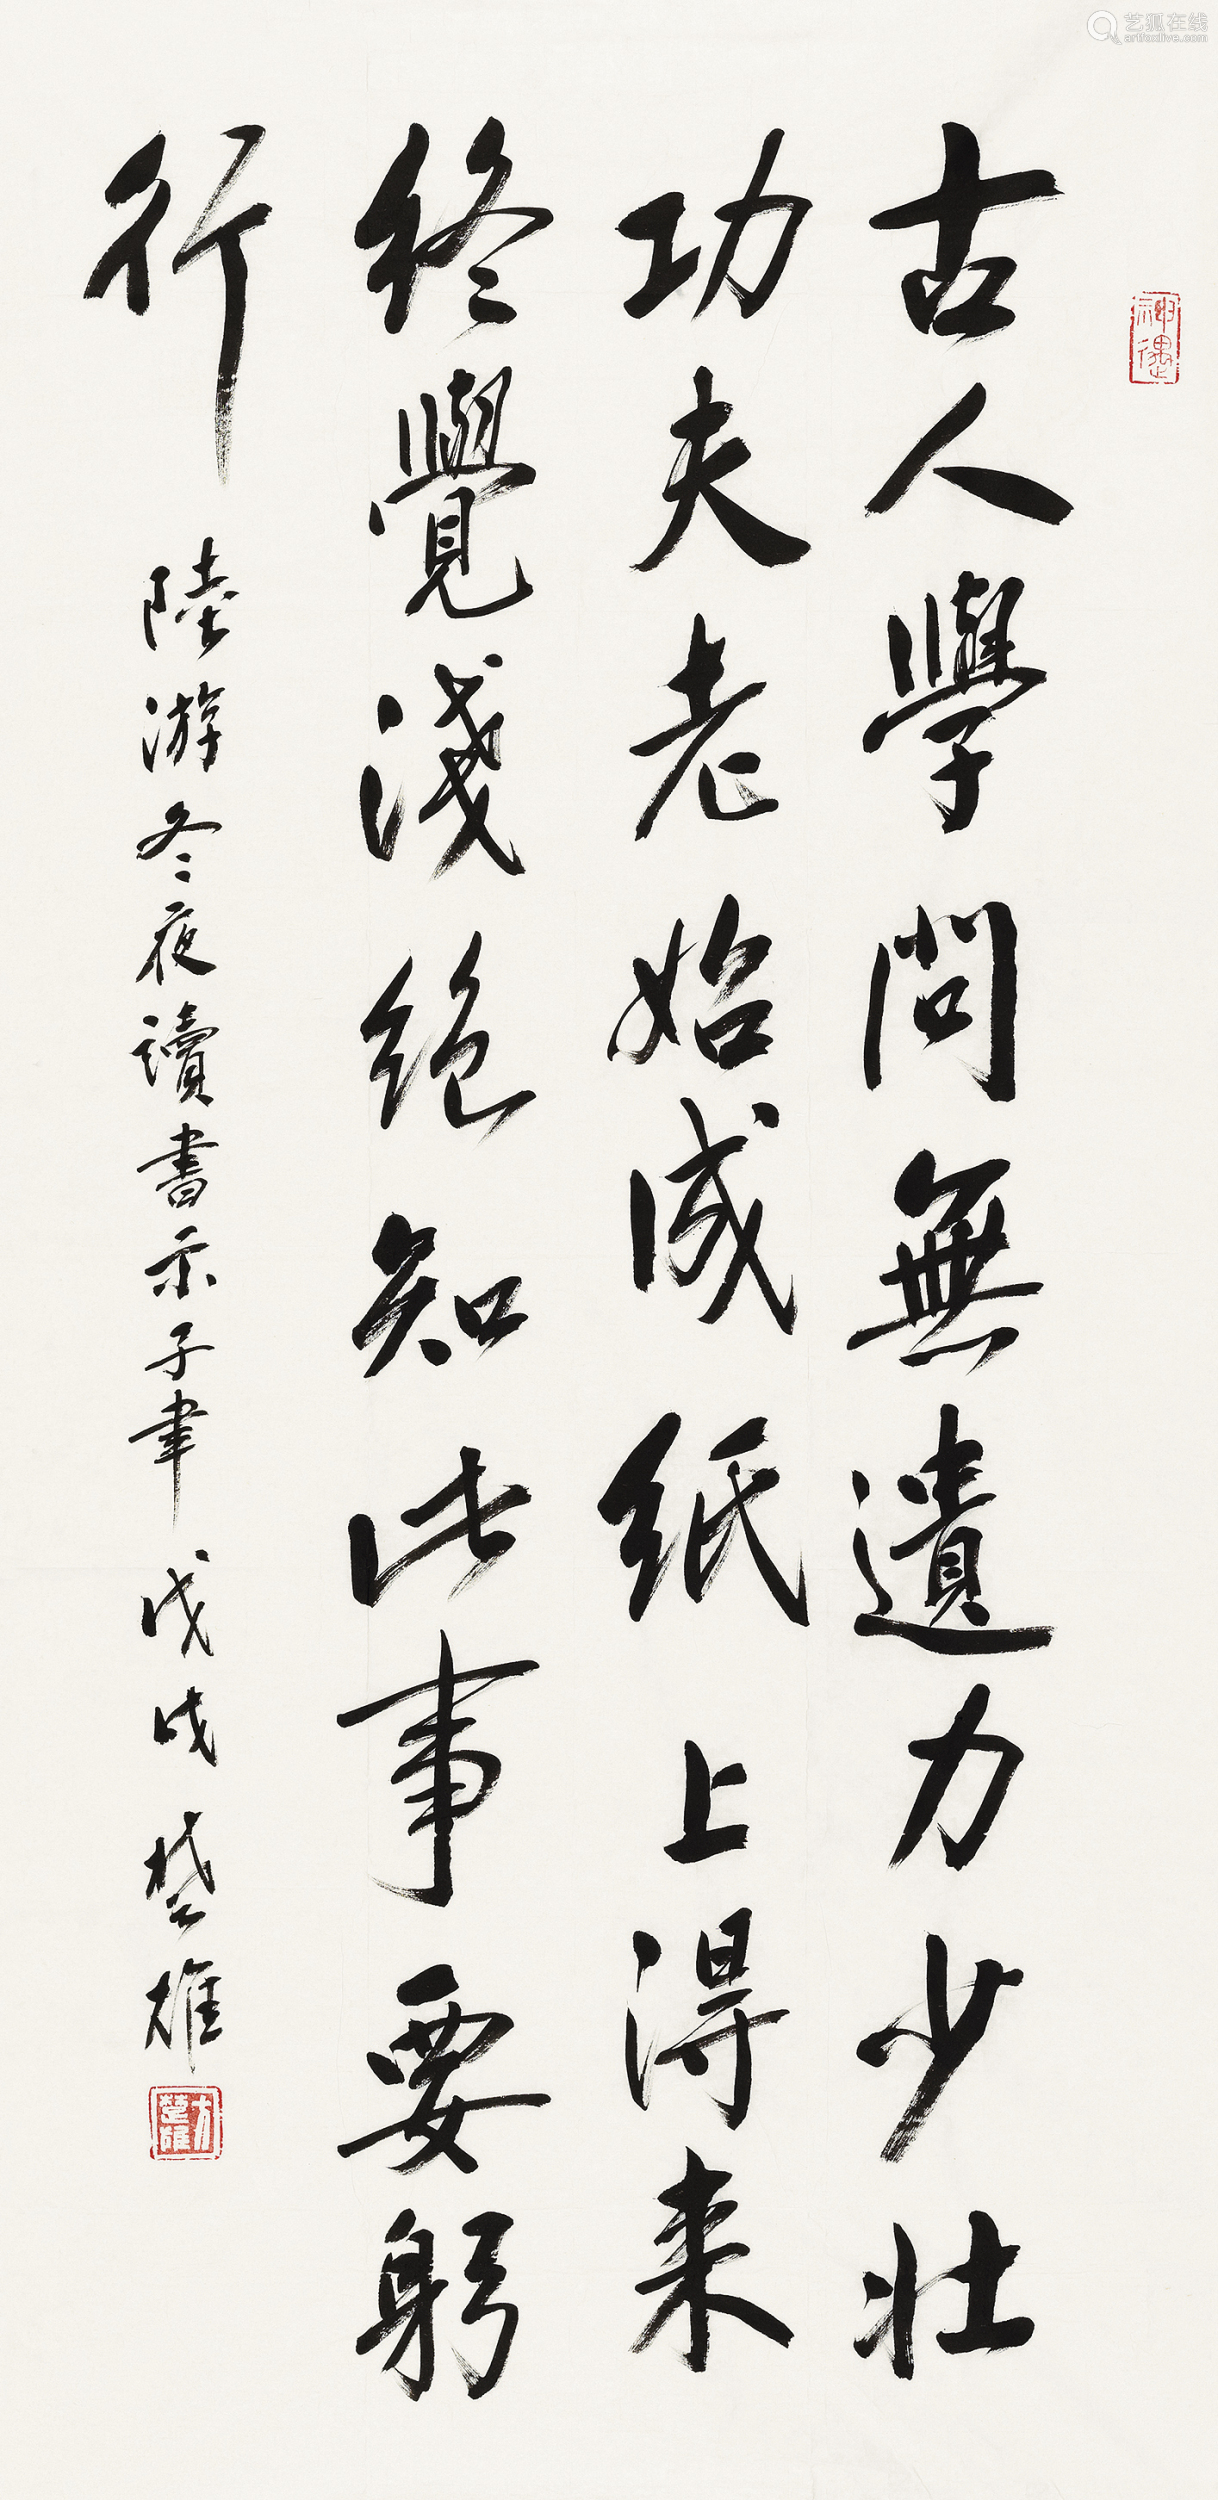 古人學問無遺力少壯
功夫老始成紙上得来
終覺淺絕知此事要躬
行
陸游冬夜讀書示子聿 戊戌 楚雄
神遇
方楚雄
艺狐在线
artfoxlive.com